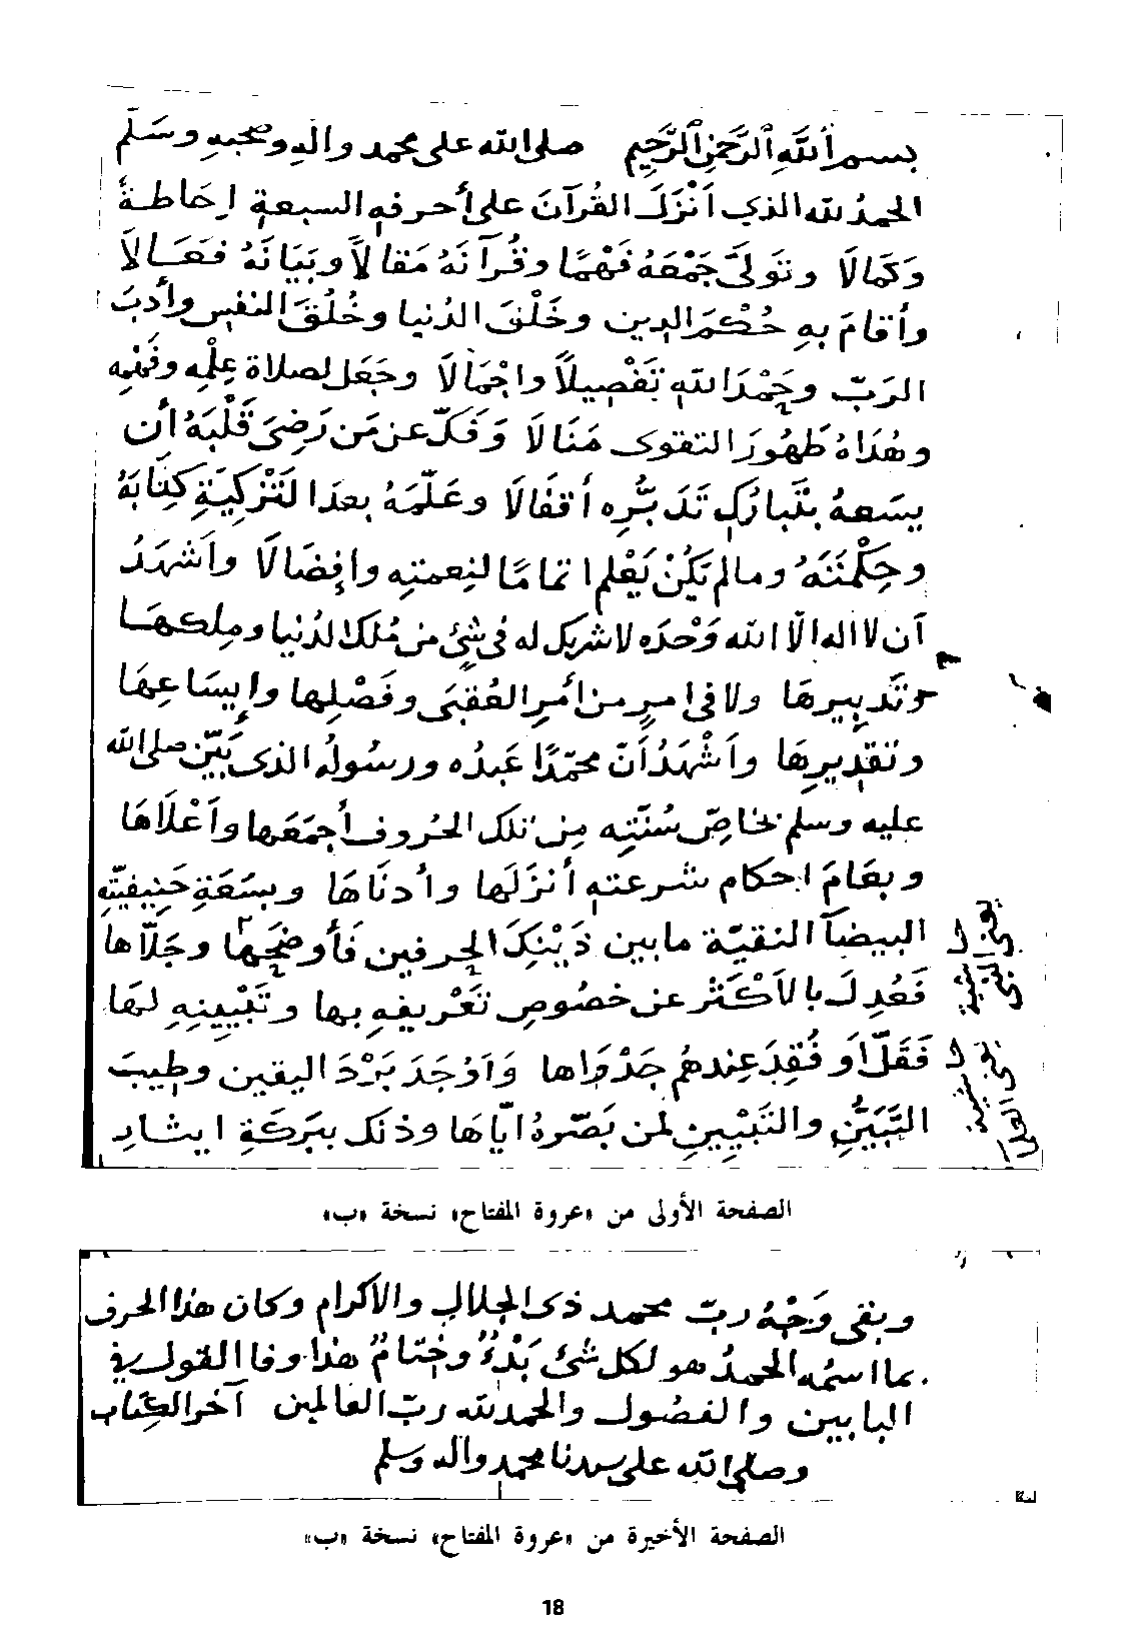 بسم اللَّهِ الرَّحمٰنِ الرَّحِيمِ صلى الله على محمد وآلهِ وصَحبهِ وسَلَّم
الحمدُ لله الذي اَنْزَلَ القُرآنَ على أحرفهِ السبعةِ إحَاطةً
وَكَمالَا وتَوَلَّى جَمْعَهُ فَهْمًا وقُرآنَهُ مَقالاً وبَيَانَهُ فَعَالاَ
وأقامَ بهِ حُكْمَ الدين وخَلْقَ الدُنيا وخُلُقَ النفسِ وأدبَ
الرَبّ وحَمْدَ اللهِ تَفْصِيلاً واجْمَالاَ وجَعَل لصلاة عِلْمِهِ وفَهْمِهِ
وهُدَاهُ طَهُورَ التقوى مَنَالاَ وَفَكّ عن مَن رَضِيَ قَلْبَهُ أن
يسَعهُ بتَبارُكِ تَدَبُّرِه أقفَالَا وعَلّمَهُ بعدَ التَزْكِيَةِ كِتَابَهُ
وحِكْمَتَهُ ومالم يَكُنْ يَعْلم اتمامًا لنِعمتِهِ وإفضَالَا واَشهَدُ
اَن لا اله الّا الله وَحْدَه لا شريك له في شئٍ من مُلك الدُنيا ومِلكهَا
وتَدبِيرهَا ولا في امرٍ من اَمرِ العُقبَى وفَصْلِها وإيسَاعِهَا
وتَقدِيرِهَا واَشْهَدُ اَنّ محمّدًا عَبدُه ورسُولُه الذى بَيّن صلى الله
عليه وسلم بخاصِّ سُنّتِهِ مِن تلك الحُروف أجمَعَها واَعْلَاهَا
وبعَامّ احكام شرعتهِ أنزَلَها وأدنَاهَا وبسَعَةِ حَنِيفيّتِهِ
البيضآ النقيّة مابين ذَيْنِكَ الحرفين فَأوضحَها وجَلّاها
فَعُدِلَ بالاَكْثَر عن خصُوصِ تَعْريفهِ بها وتَبْيِينِهِ لهَا
فَقَلّ اَو فُقِدَ عِندهُم جَدْوَاها وَاَوْجَدَ بَرْدَ اليقين وطِيبَ
التَبَيُّنِ والتَبْيِينِ لمن بَصّرهُ ايّاهَا وذلك ببَرَكَةِ ايثارِ
حاشية يعنى النبى
حاشية يعنى العلم
الصفحة الأولى من «عروة المفتاح» نسخة «ب»
وبقى وَجْهُ ربّ محمد ذى الجلال والاكرام وكان هذا الحرف
بما اسمُه الحمدُ هو لكل شئ بَدْءٌ وخِتامٌ هذا وفا القول في
البابين والفصُول والحمد لله ربّ العالمين آخر الكتاب
وصلى الله على سيدنا محمد وآله وسلم
الصفحة الأخيرة من «عروة المفتاح» نسخة «ب»
18